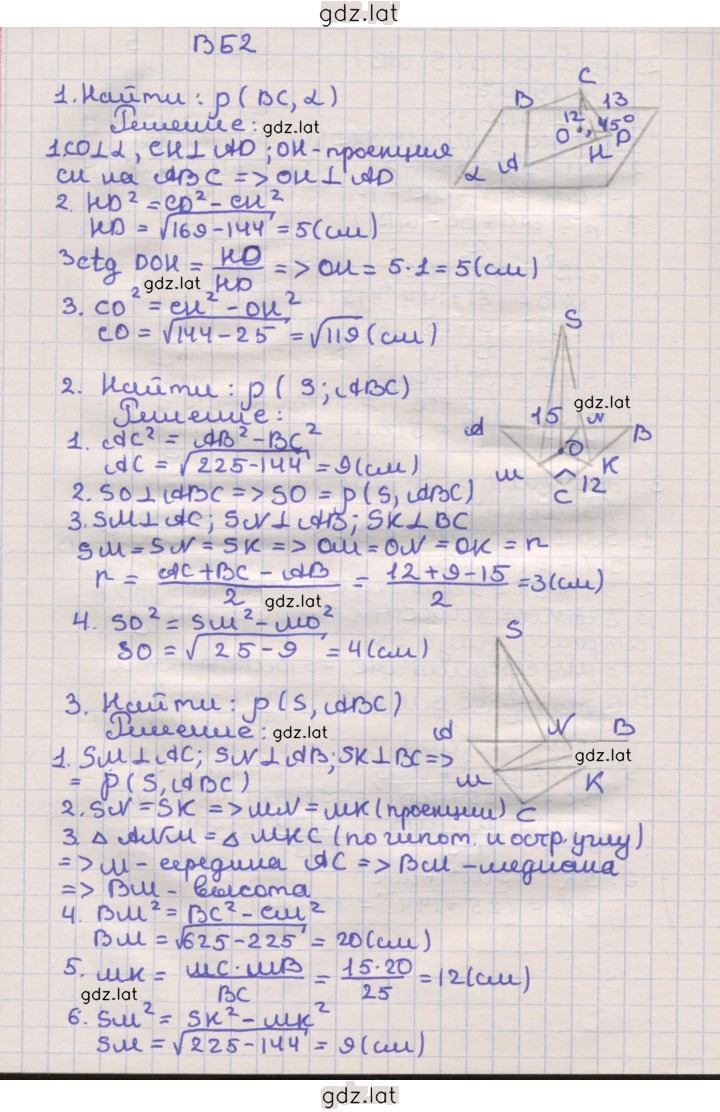 gdz.lat
ВБ2
1. Найти: ρ(BC, α)
Решение:
gdz.lat
1. CO⊥α, CH⊥AD; OH-проекция
CH на ABC => OH⊥AD
2. HD² = CD² - CH²
HD = √169-144 = 5(см)
3 ctg DOH = HO/HD => OH = 5·1 = 5(см)
gdz.lat
3. CO² = CH² - OH²
CO = √144-25 = √119 (см)
B
C
13
12
45°
O
D
H
A
α
2. Найти: ρ( S; ABC)
Решение:
1. AC² = AB² - BC²
AC = √225-144 = 9(см)
2. SO⊥ABC => SO = ρ(S, ABC)
3. SM⊥AC; SN⊥AB; SK⊥BC
SM = SN = SK => OM = ON = OK = r
r = AC+BC-AB/2 = 12+9-15/2 = 3(см)
gdz.lat
4. SO² = SM² - MO²
SO = √25-9 = 4(см)
S
gdz.lat
A
15
N
B
O
M
K
C
12
3. Найти: ρ(S, ABC)
Решение:
gdz.lat
1. SM⊥AC; SN⊥AB; SK⊥BC =>
= ρ(S, ABC)
2. SN = SK => MN = MK (проекции)
3. △ ANM = △ MKC (по гипот. и остр. углу)
=> M - середина AC => BM - медиана
=> BM - высота
4. BM² = BC² - CM²
BM = √625-225 = 20(см)
5. MK = MC·MB/BC = 15·20/25 = 12(см)
gdz.lat
6. SM² = SK² - MK²
SM = √225-144 = 9(см)
S
A
N
B
gdz.lat
M
K
C
gdz.lat